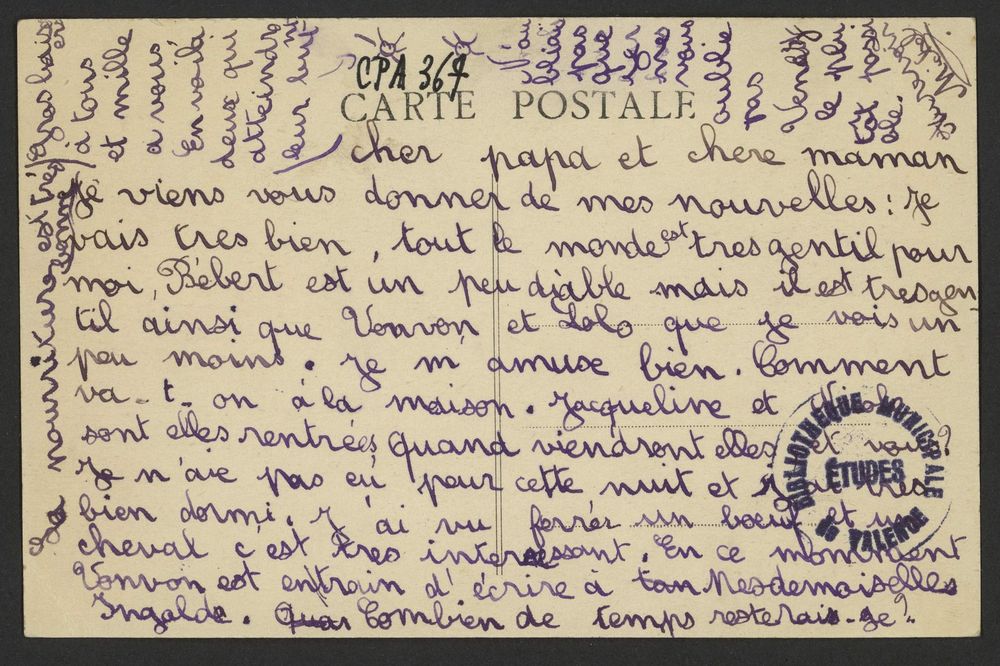 CPA 367
CARTE POSTALE
cher papa et chere maman
Je viens vous donner de mes nouvelles : Je
vais tres bien, tout le monde est tres gentil pour
moi, Bébert est un peu diable mais il est tres gen-
til ainsi que Vonvon et Lolo que je vois un
peu moins. Je m'amuse bien. Comment
va-t-on à la maison. Jacqueline et
sont elles rentrées Quand viendront elles et vous ?
Je n'aie pas eu peur cette nuit et j'ai tres
bien dormi. J'ai vu ferrer un boeuf et un
cheval c'est tres interessant. En ce moment
Vonvon est entrain d'écrire à tan Mesdemoiselles
Ingalde. Quan Combien de temps resterais-je ?
La nourriture est très bonne
Gros baisers
à tous
et mille
a vous
En voilà
deux qui
atteindront
leur but
J'ai
oublié
pas
que
je
vais
oublie
pas
BIBLIOTHÈQUE MUNICIPALE
ÉTUDES
DE VALENCE